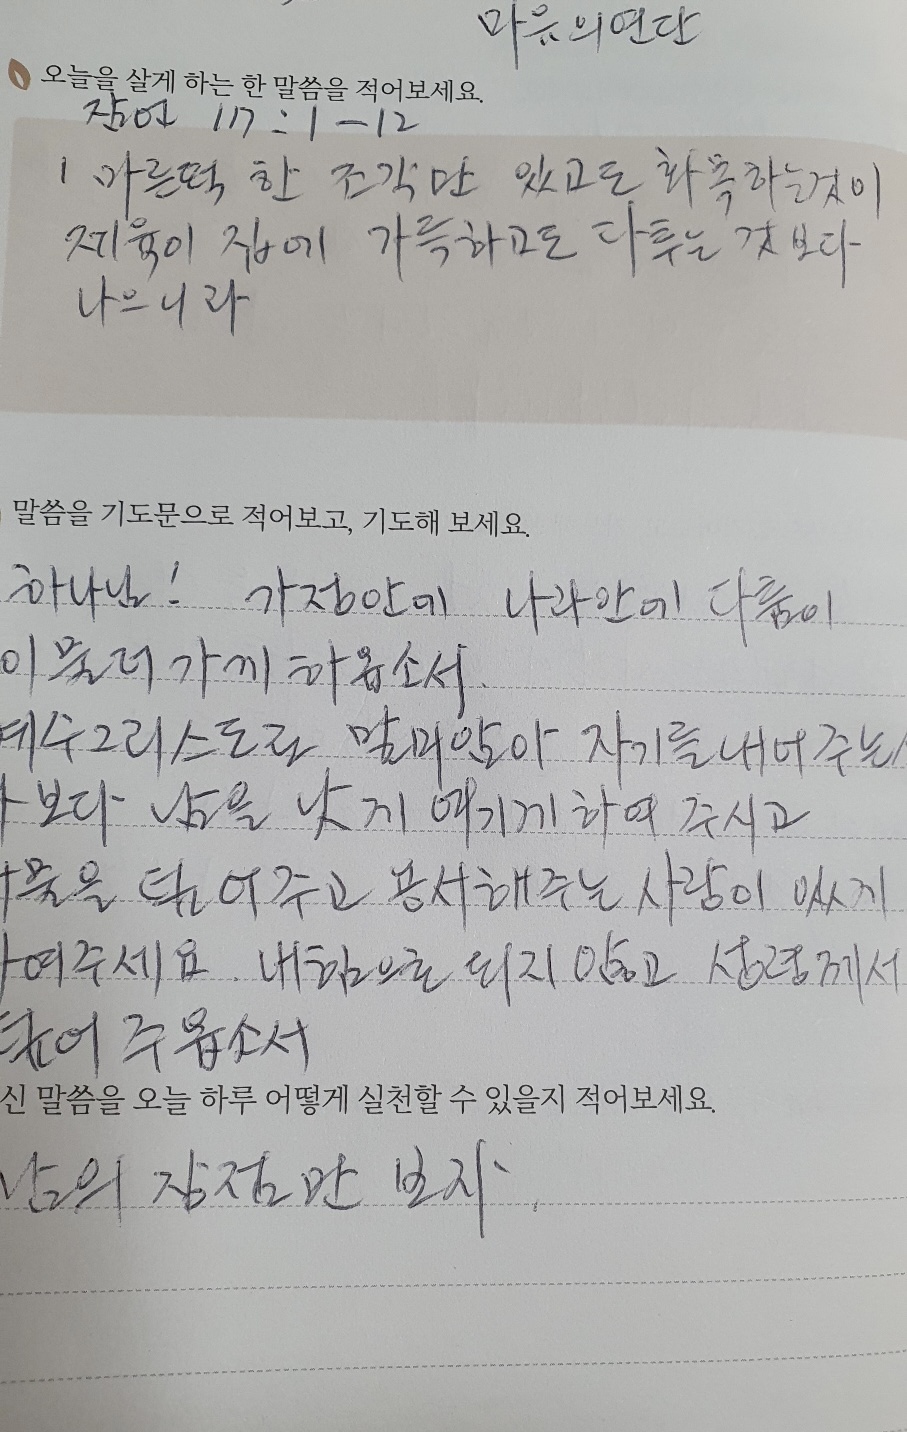 마음의연단
오늘을 살게 하는 한 말씀을 적어보세요.
잠언 17:1-12
1 마른떡 한 조각만 있고도 화목하는것이
제육이 집에 가득하고도 다투는 것보다
나으니라
말씀을 기도문으로 적어보고, 기도해 보세요.
하나님! 가정안에 나라안에 다툼이
이 물러가게 하옵소서.
예수그리스도로 말미암아 자기를내어주는
보다 남을 낫게 여기게하여 주시고
덮어주고 용서해주는 사람이 있게
여주세요. 내힘으로 되지 않고 성령께서
주옵소서
신 말씀을 오늘 하루 어떻게 실천할 수 있을지 적어보세요.
남의 장점만 보자.